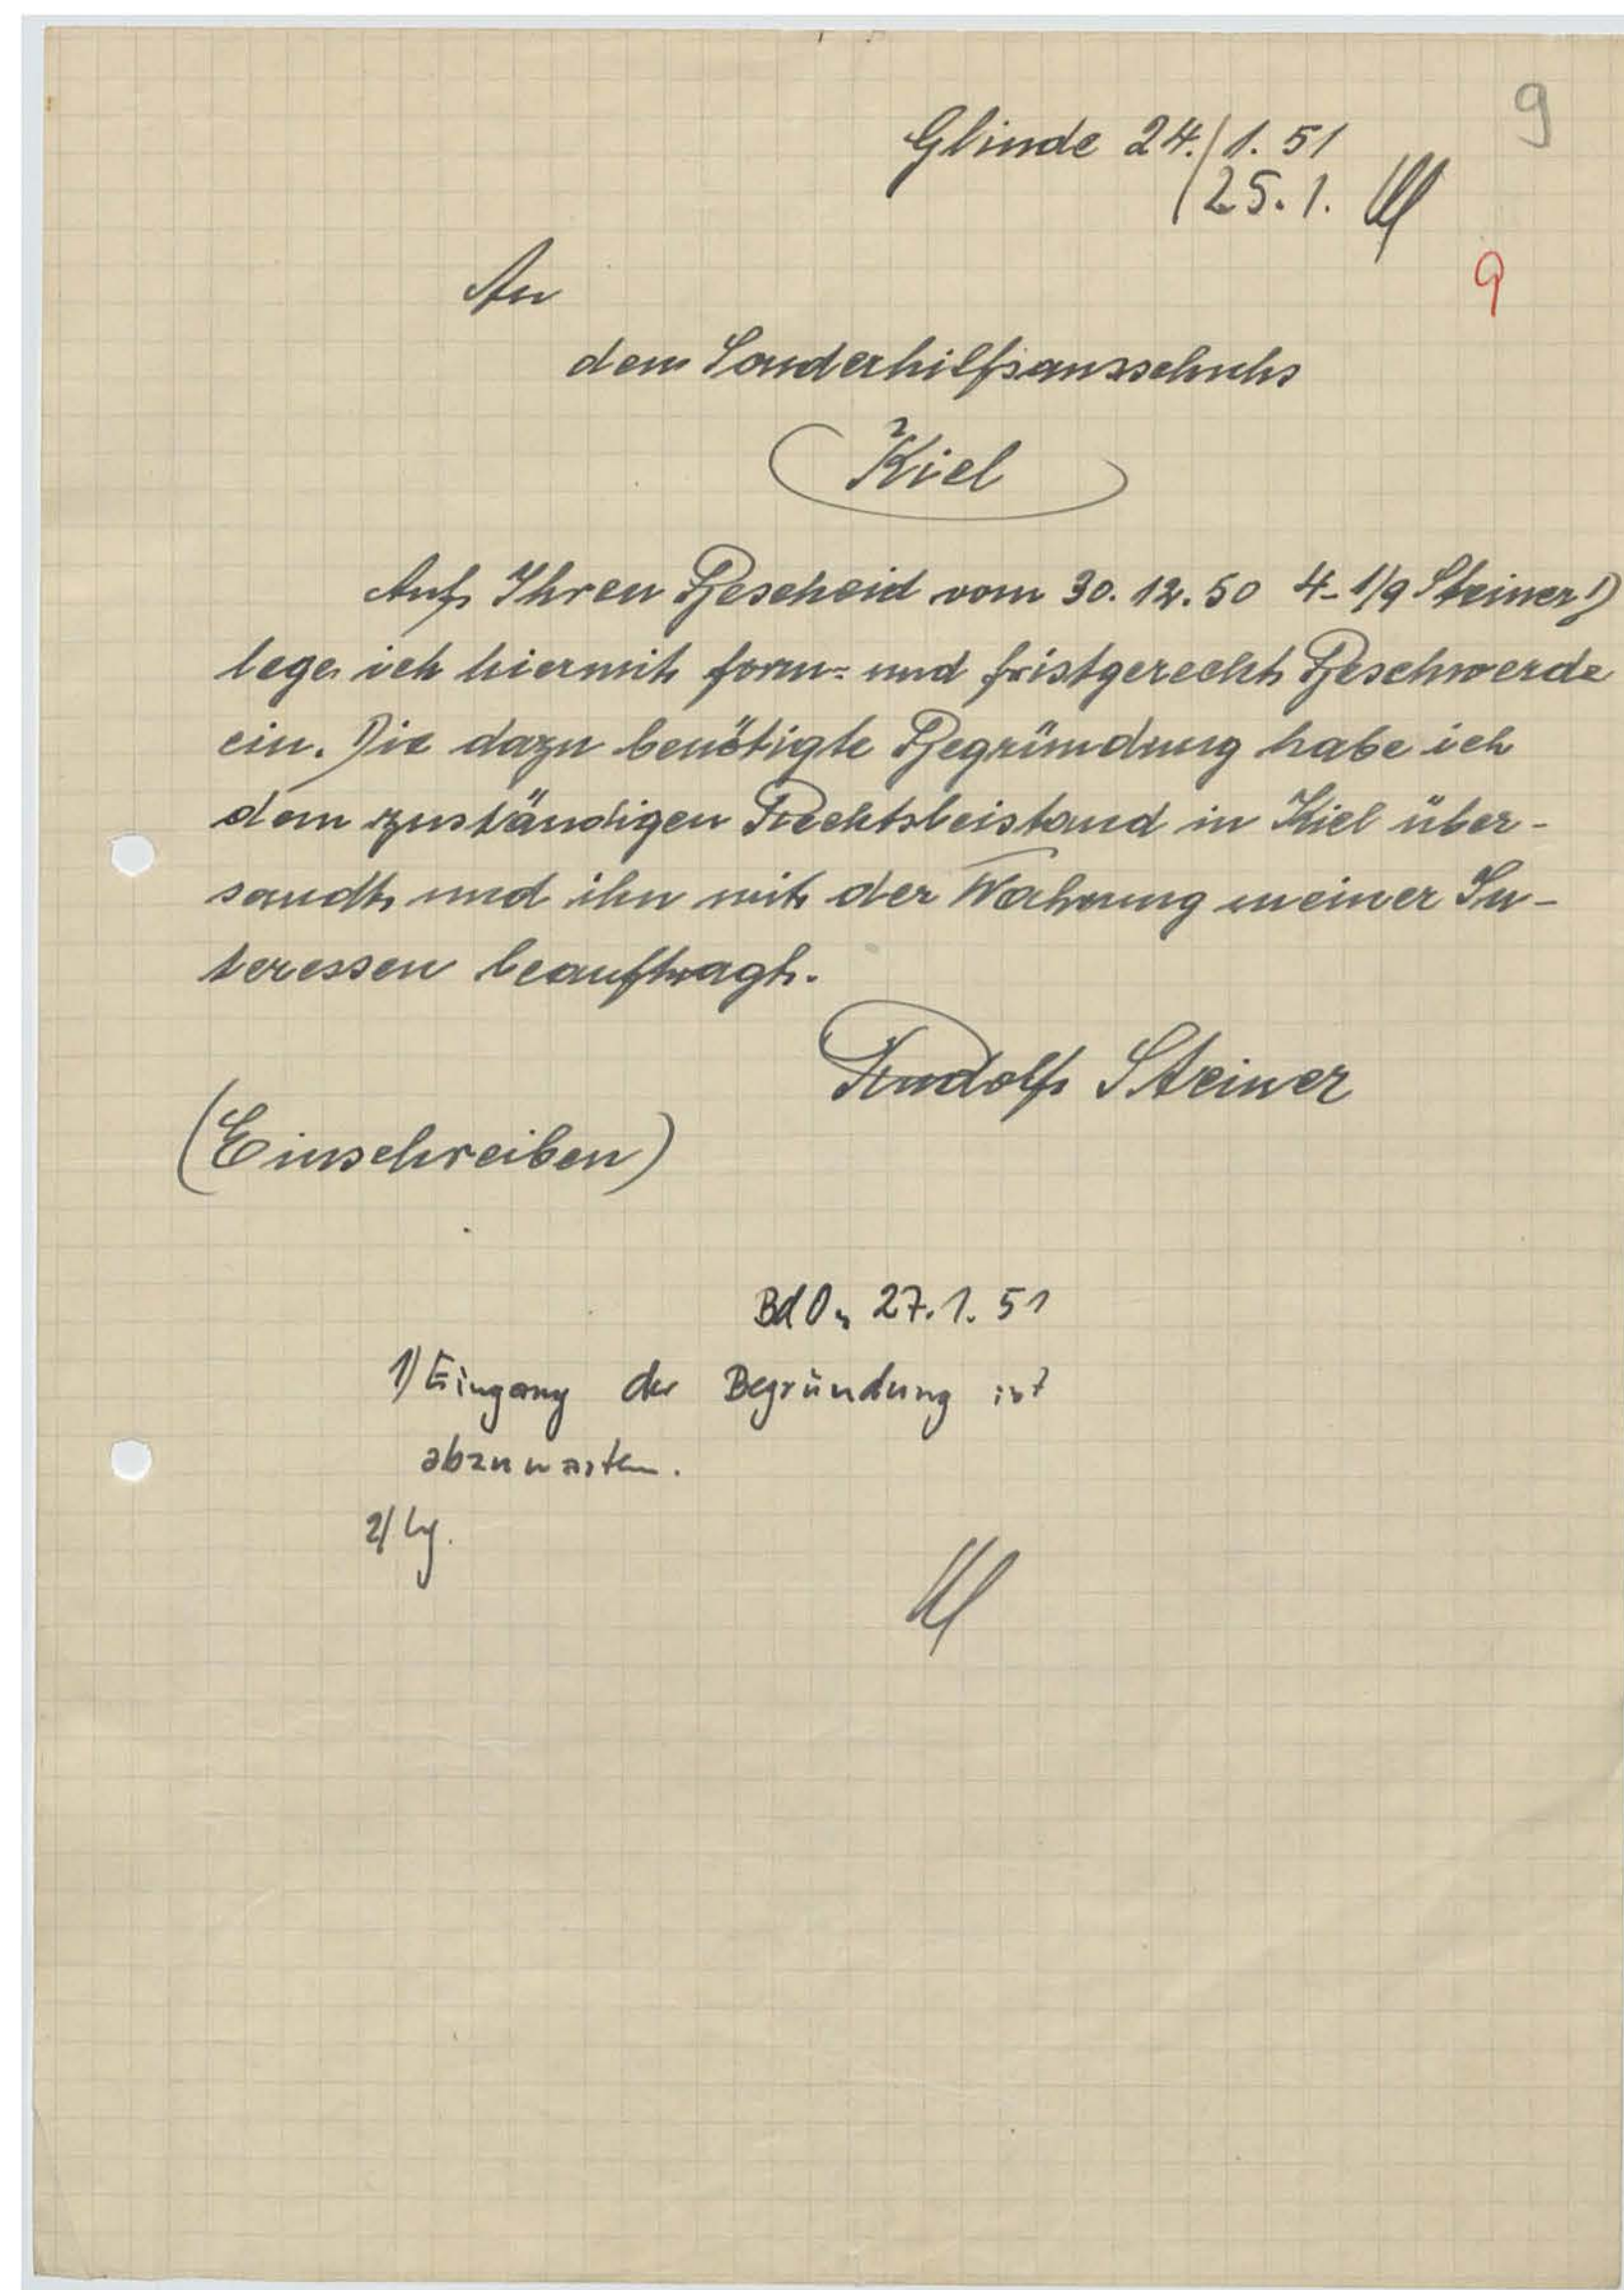 9
Glinde 24./1. 51
25. 1.
9
An
den Sonderhilfsausschuhs
Kiel
Auf Ihren Bescheid vom 30. 12. 50 4-1/9 Steiner
lege ich hiermit form- und fristgerecht Beschwerde
ein. Die dazu benötigte Begründung habe ich
dem zuständigen Rechtsbeistand in Kiel über-
sandt und ihn mit der Wahrung meiner In-
teressen beauftragt.
Rudolf Steiner
(Einschreiben)
27. 1. 51
1) Eingang der Begründung ist
abzuwarten.
2)